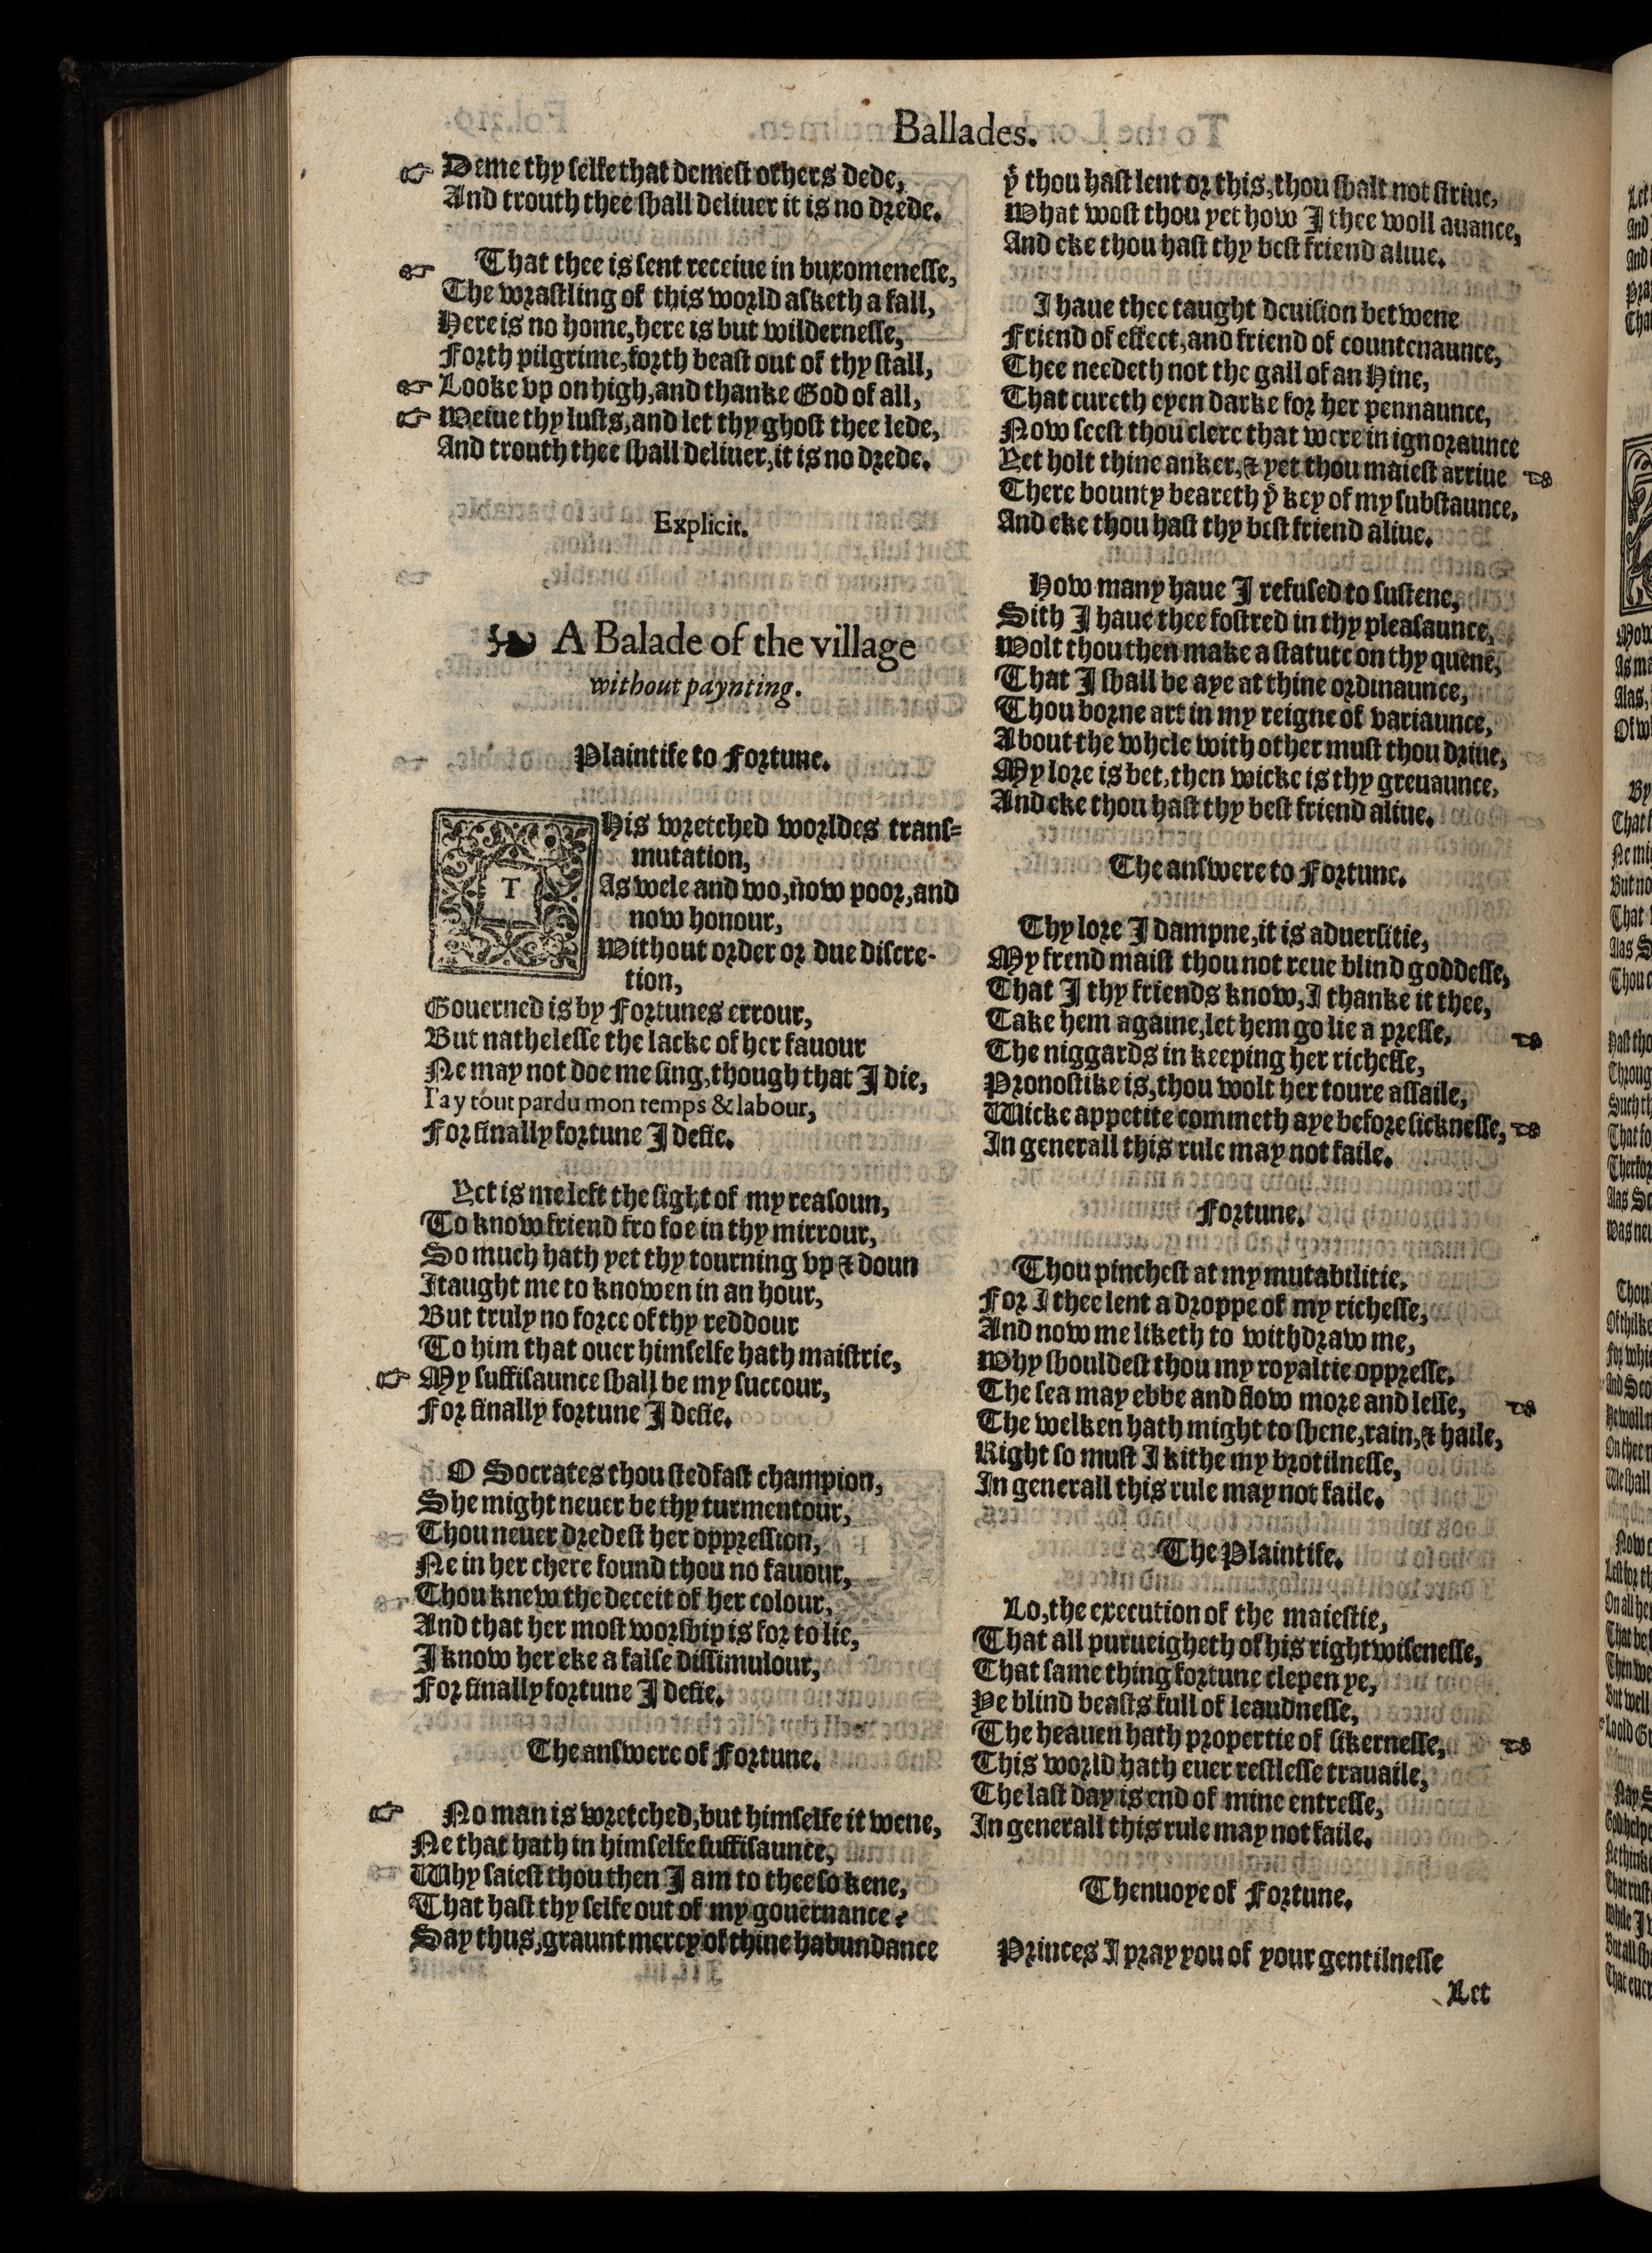 Ballades.
☞ Deme thy ſelfe that demeſt others dede,
And trouth thee ſhall deliuer it is no drede.
☞ That thee is ſent receiue in buxomeneſſe,
The wraſtling of this world aſketh a fall,
Here is no home, here is but wilderneſſe,
Forth pilgrime, forth beaſt out of thy ſtall,
☞ Looke vp on high, and thanke God of all,
☞ Weiue thy luſts, and let thy ghoſt thee lede,
And trouth thee ſhall deliuer, it is no drede.
Explicit.
A Balade of the village
without paynting.
Plaintife to Fortune.
THis wretched worldes tranſ-
mutation,
As wele and wo, now poor, and
now honour,
Without order or due diſcre-
tion,
Gouerned is by Fortunes errour,
But natheleſſe the lacke of her fauour
Ne may not doe me ſing, though that I die,
I'ay tout pardu mon temps & labour,
For finally fortune I defie.
Yet is me left the ſight of my reaſoun,
To know friend fro foe in thy mirrour,
So much hath yet thy tourning vp & doun
Itaught me to knowen in an hour,
But truly no force of thy reddour
To him that ouer himſelfe hath maiſtrie,
☞ My ſuffiſaunce ſhall be my ſuccour,
For finally fortune I defie.
O Socrates thou ſtedfaſt champion,
She might neuer be thy turmentour,
Thou neuer dredeſt her oppreſſion,
Ne in her chere found thou no fauour,
Thou knew the deceit of her colour,
And that her moſt worſhip is for to lie,
I know her eke a falſe diſſimulour,
For finally fortune I defie.
The anſwere of Fortune.
☞ No man is wretched, but himſelfe it wene,
Ne that hath in himſelfe ſuffiſaunce,
Why ſaieſt thou then I am to thee ſo kene,
That haſt thy ſelfe out of my gouernance?
Say thus, graunt mercy of thine habundance
yͭ thou haſt lent or this, thou ſhalt not ſtriue,
What woſt thou yet how I thee woll auance,
And eke thou haſt thy beſt friend aliue.
I haue thee taught deuiſion betwene
Friend of effect, and friend of countenaunce,
Thee needeth not the gall of an Hine,
That cureth eyen darke for her pennaunce,
Now ſeeſt thou clere that were in ignoraunce
Yet holt thine anker, & yet thou maieſt arriue ☜
There bounty beareth yͤ key of my ſubſtaunce,
And eke thou haſt thy beſt friend aliue.
How many haue I refuſed to ſuſtene,
Sith I haue thee foſtred in thy pleaſaunce,
Wolt thou then make a ſtatute on thy quene,
That I ſhall be aye at thine ordinaunce,
Thou borne art in my reigne of variaunce,
About the whele with other muſt thou driue,
My lore is bet, then wicke is thy greuaunce,
And eke thou haſt thy beſt friend aliue.
The anſwere to Fortune.
Thy lore I dampne, it is aduerſitie,
My frend maiſt thou not reue blind goddeſſe,
That I thy friends know, I thanke it thee,
Take hem againe, let hem go lie a preſſe, ☜
The niggards in keeping her richeſſe,
Pronoſtike is, thou wolt her toure aſſaile,
Wicke appetite commeth aye before ſickneſſe, ☜
In generall this rule may not faile.
Fortune.
Thou pincheſt at my mutabilitie,
For I thee lent a droppe of my richeſſe,
And now me liketh to withdraw me,
Why ſhouldeſt thou my royaltie oppreſſe.
The ſea may ebbe and flow more and leſſe, ☜
The welken hath might to ſhene, rain, & haile,
Right ſo muſt I kithe my brotilneſſe,
In generall this rule may not faile.
The Plaintife.
Lo, the execution of the maieſtie,
That all purueigheth of his rightwiſeneſſe,
That ſame thing fortune clepen ye,
Ye blind beaſts full of leaudneſſe,
The heauen hath propertie of ſikerneſſe, ☜
This world hath euer reſtleſſe trauaile,
The laſt day is end of mine entreſſe,
In generall this rule may not faile.
Thenuoye of Fortune.
Princes I pray you of your gentilneſſe
Let